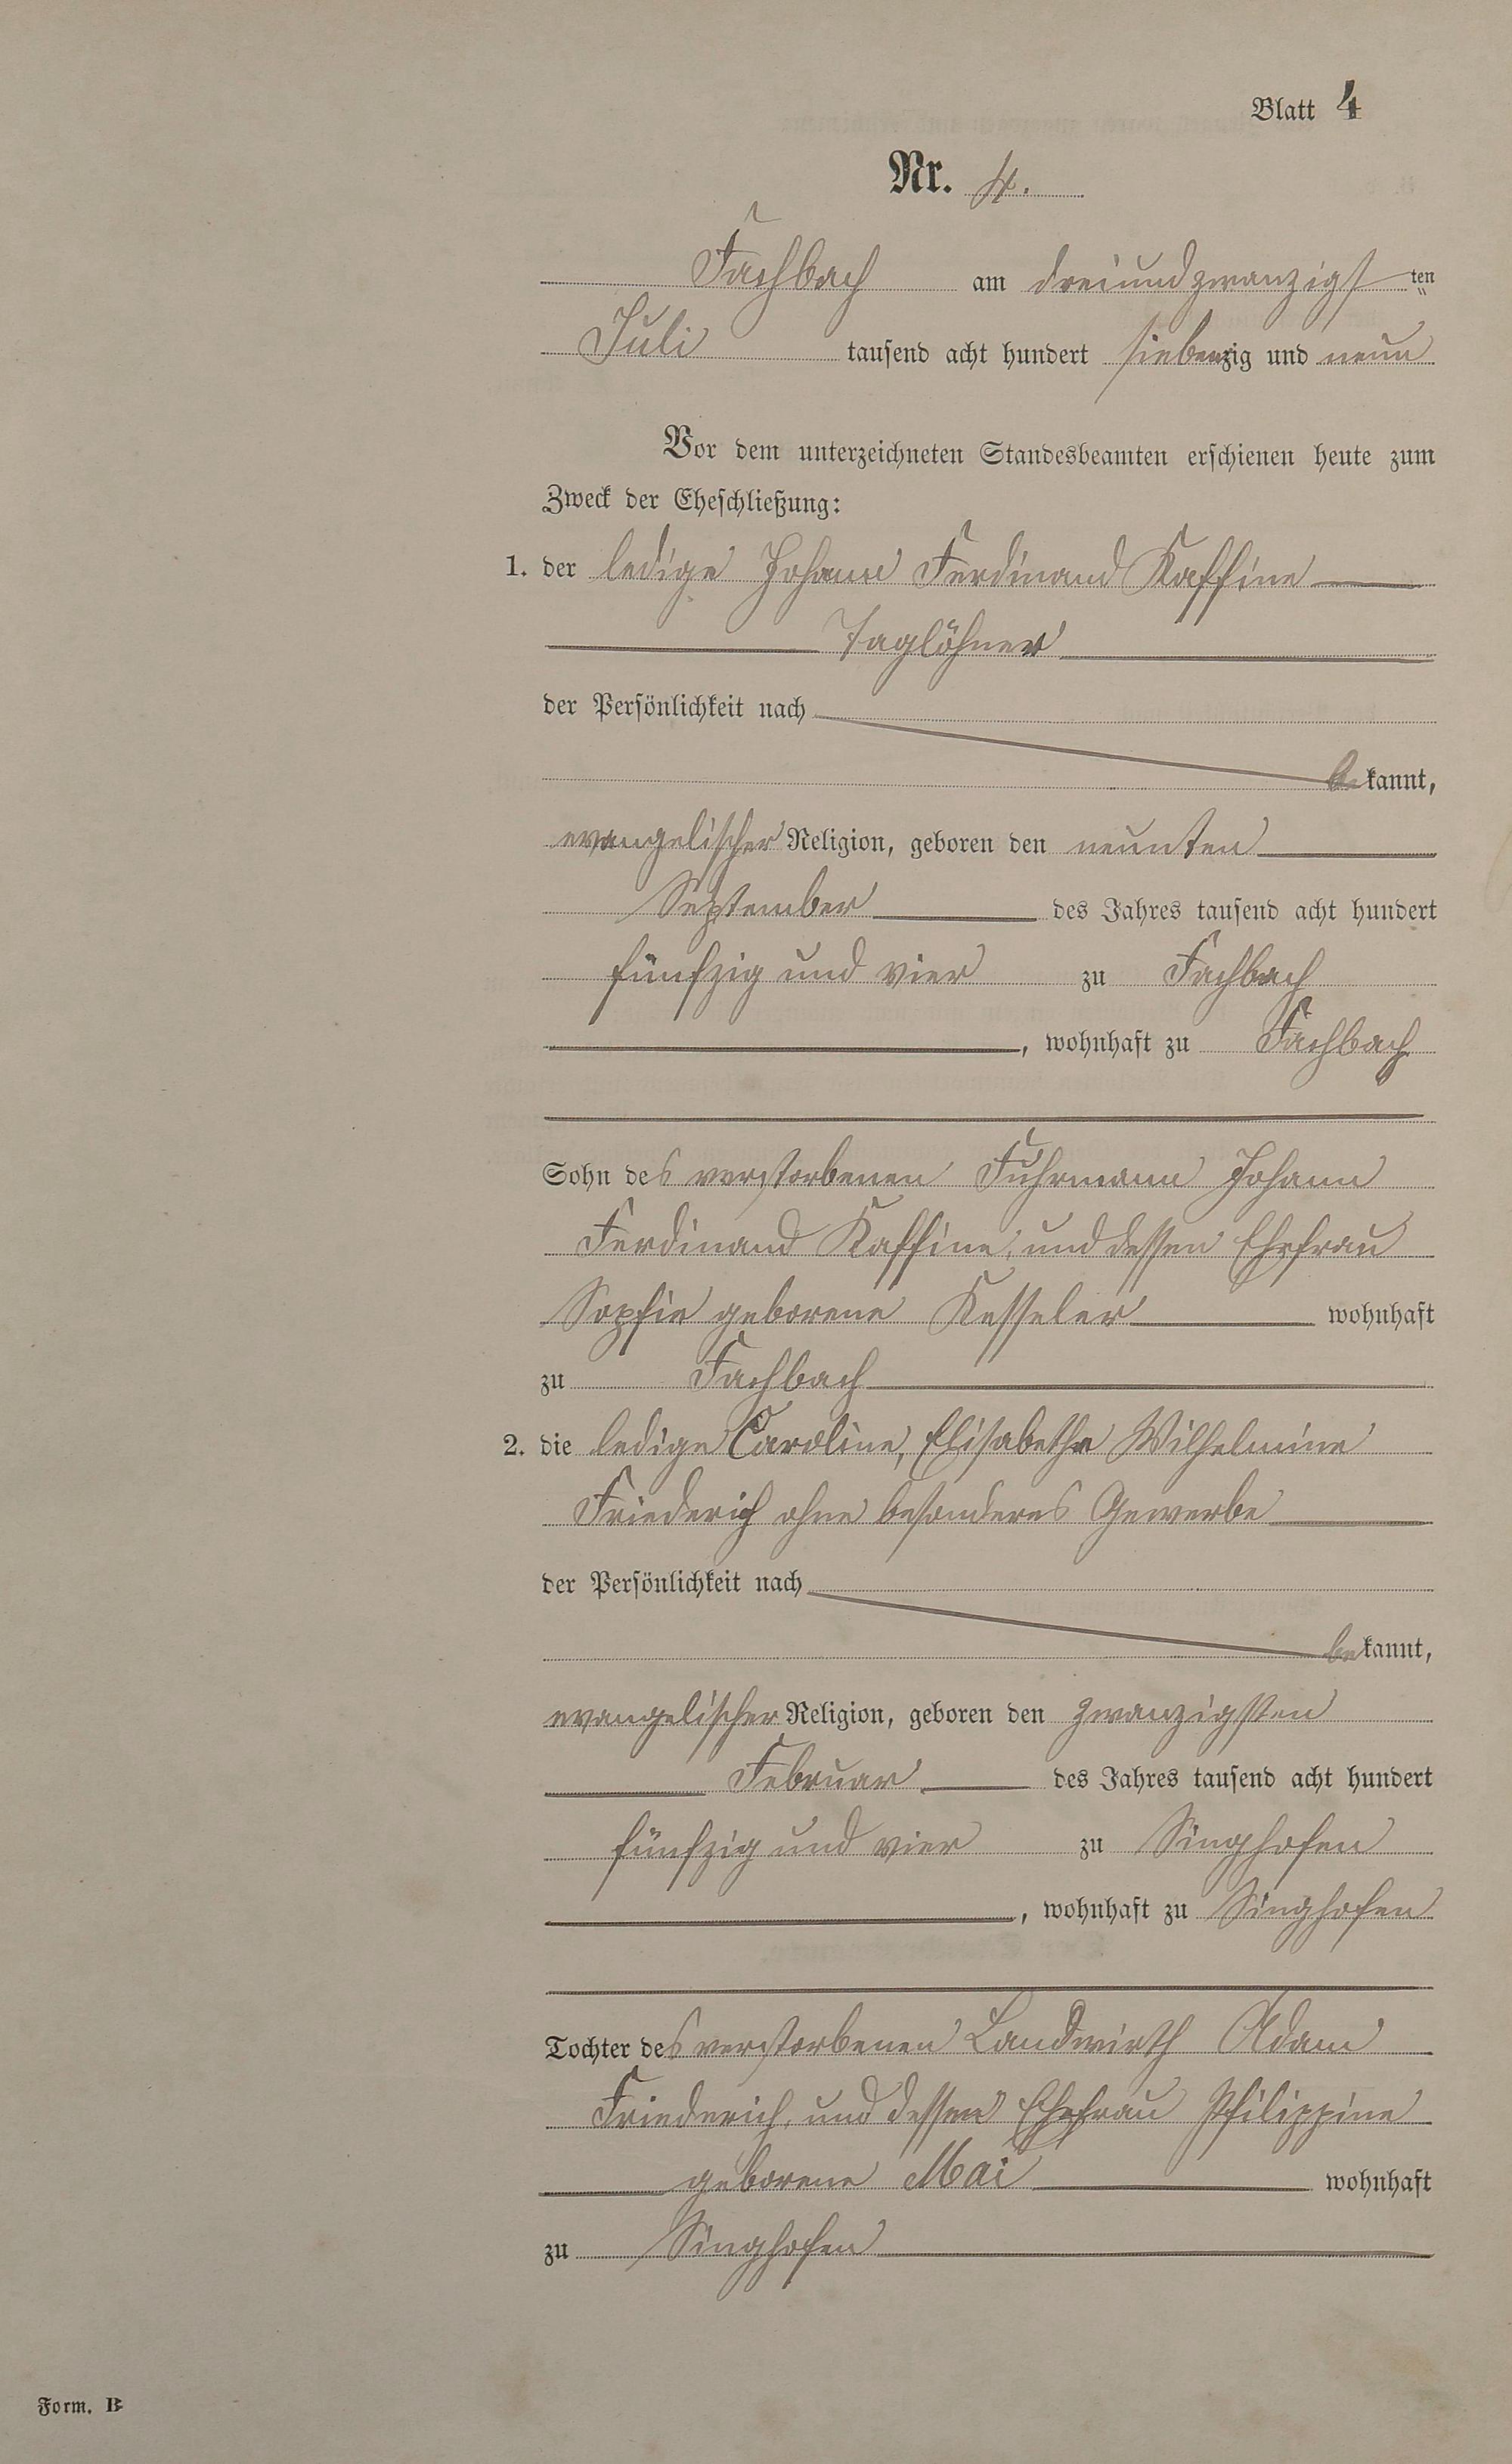 Blatt 4
Nr. 4.
Fachbach am dreiundzwanzigst ten
Juli tausend acht hundert siebenzig und neun
Vor dem unterzeichneten Standesbeamten erschienen heute zum
Zweck der Eheschließung:
1. der ledige Johann Ferdinand Kaffine
Taglöhner
der Persönlichkeit nach
bekannt,
evangelischer Religion, geboren den neunten
September des Jahres tausend acht hundert
fünfzig und vier zu Fachbach
, wohnhaft zu Fachbach
Sohn des verstorbenen Fuhrmann Johann
Ferdinand Kaffine, und dessen Ehefrau
Sophie geborene Kesseler wohnhaft
zu Fachbach
2. die ledige Caroline, Elisabethe Wilhelmine
Friederich ohne besonderes Gewerbe
der Persönlichkeit nach
bekannt,
evangelischer Religion, geboren den zwanzigsten
Februar des Jahres tausend acht hundert
fünfzig und vier zu Singhofen
, wohnhaft zu Singhofen
Tochter des verstorbenen Landwirth Adam
Friederich, und dessen Ehefrau Philippine
geborene Mai wohnhaft
zu Singhofen
Form. B